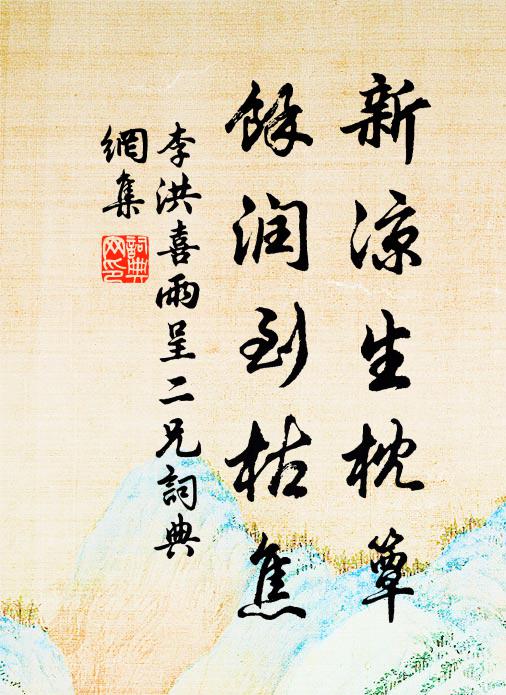 新涼生枕簟
餘润到枯焦
李洪喜雨呈二兄詞典
網集
詞典网印